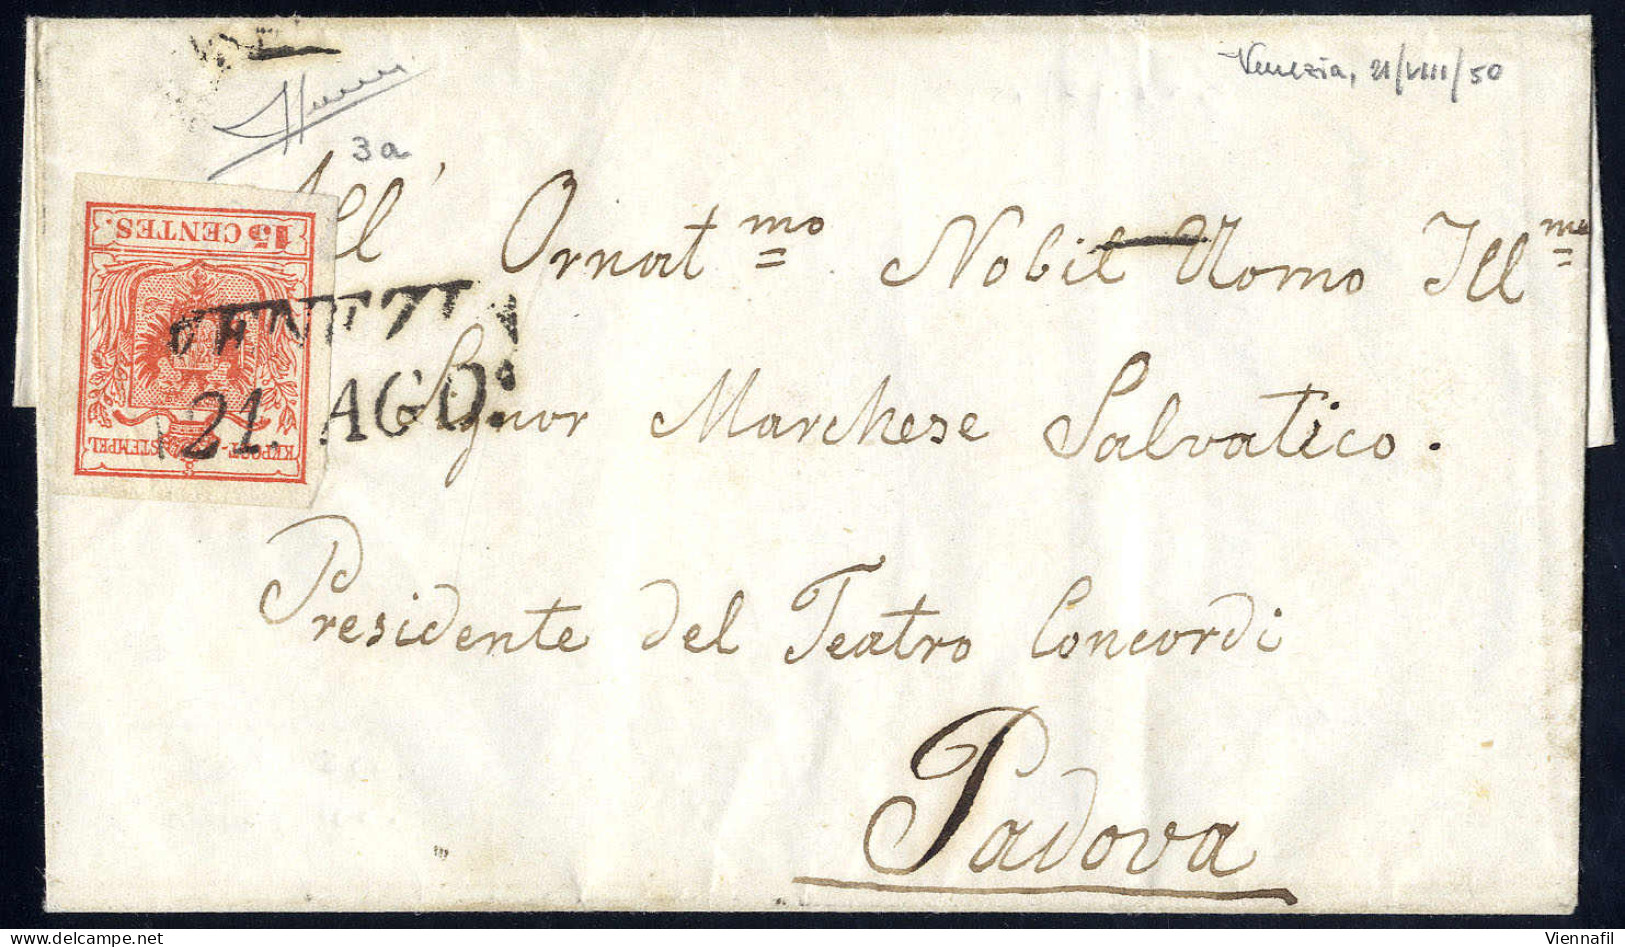 Venezia, 21/VIII/50
3a
All' Ornat.mo Nobil Uomo Ill.mo
Signor Marchese Salvatico.
Presidente del Teatro Concordi
Padova
15 CENTES.
VENEZIA
21. AGO.
KKPOST-STEMPEL
Viennafil